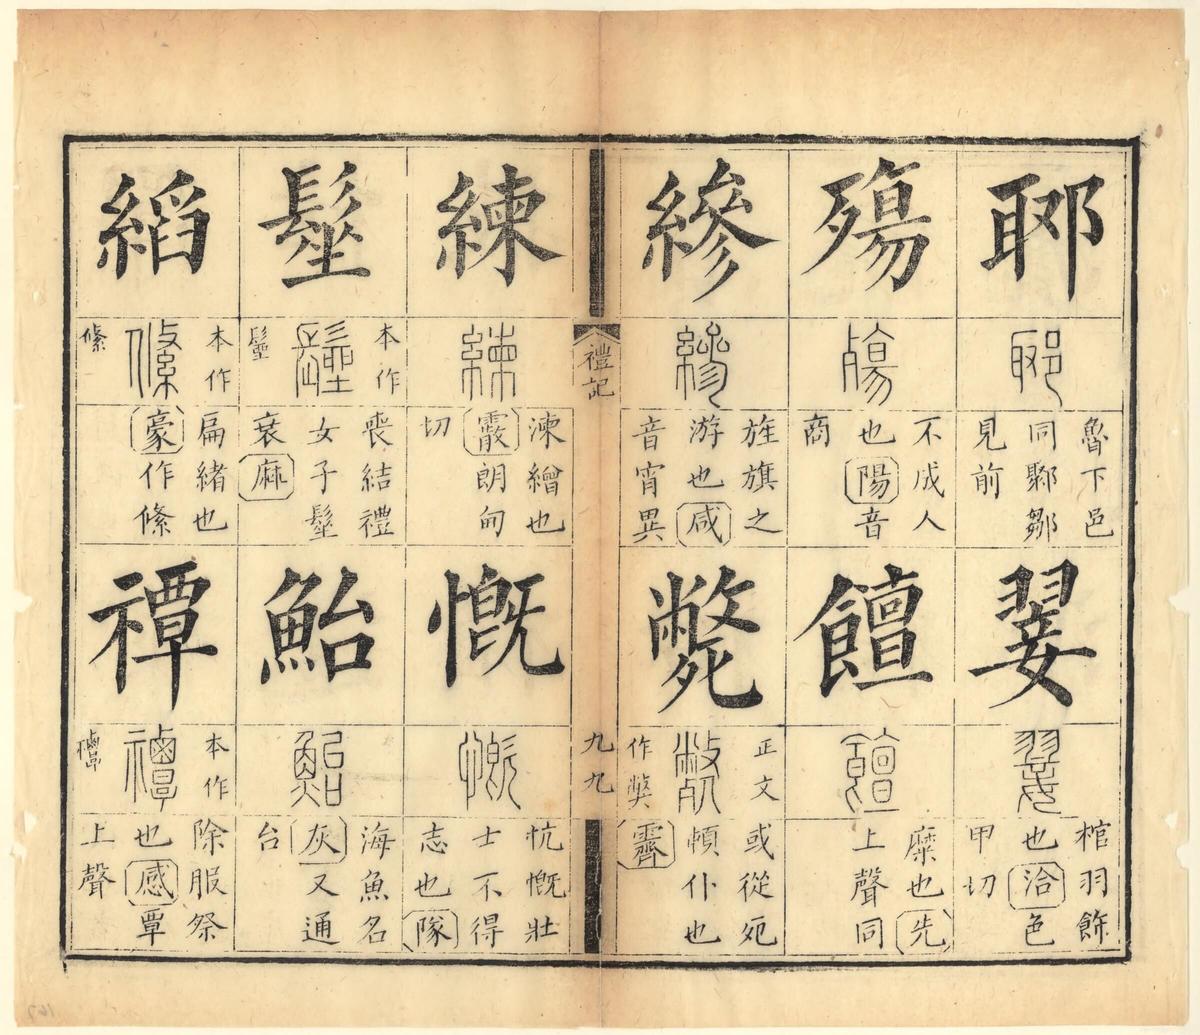 郰
郰
魯下邑
同鄹鄒
見前
殤
殤
不成人
也陽音
商
縿
縿
旌旗之
游也咸
音宵異
翣
翣
棺羽飾
也洽色
甲切
饘
饘
糜也先
上聲同
斃
正文
斃
作獘
或從死
頓仆也
霽
禮記
九九
練
練
湅繒也
霰朗甸
切
髽
本作
髽
髽
喪結禮
女子髽
衰麻
縚
本作
絛
絛
扁緒也
豪作絛
慨
慨
忼慨壯
士不得
志也隊
鮐
鮐
海魚名
灰又通
台
禫
本作
禫
除服祭
也感覃
上聲